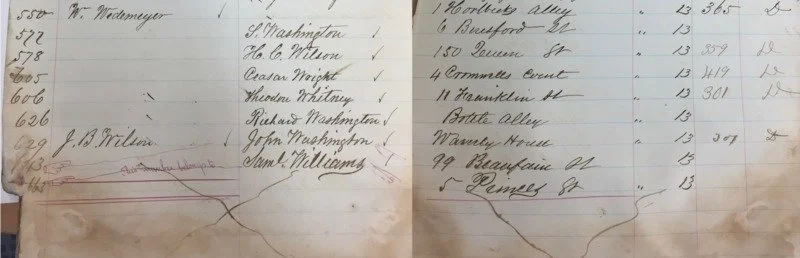 550 W. Wedemeyer ✓
572 S. Washington ✓
578 H. C. Wilson ✓
605 Ceasar Wright ✓
606 " Theodore Whitney ✓
626 Richard Washington ✓
629 J. B. Wilson ✓ John Washington ✓
663 Saml. Williams
663 This number belongs to
1 Horlbecks Alley " 13 365 D
6 Beresford St " 13
150 Queen St " 13 359 D
4 Cromwells Court " 13 419 D
11 Franklin St " 13 301 D
Alley " 13
Waverly House " 13 301 D
99 Beaufain St " 13
5 St " 13